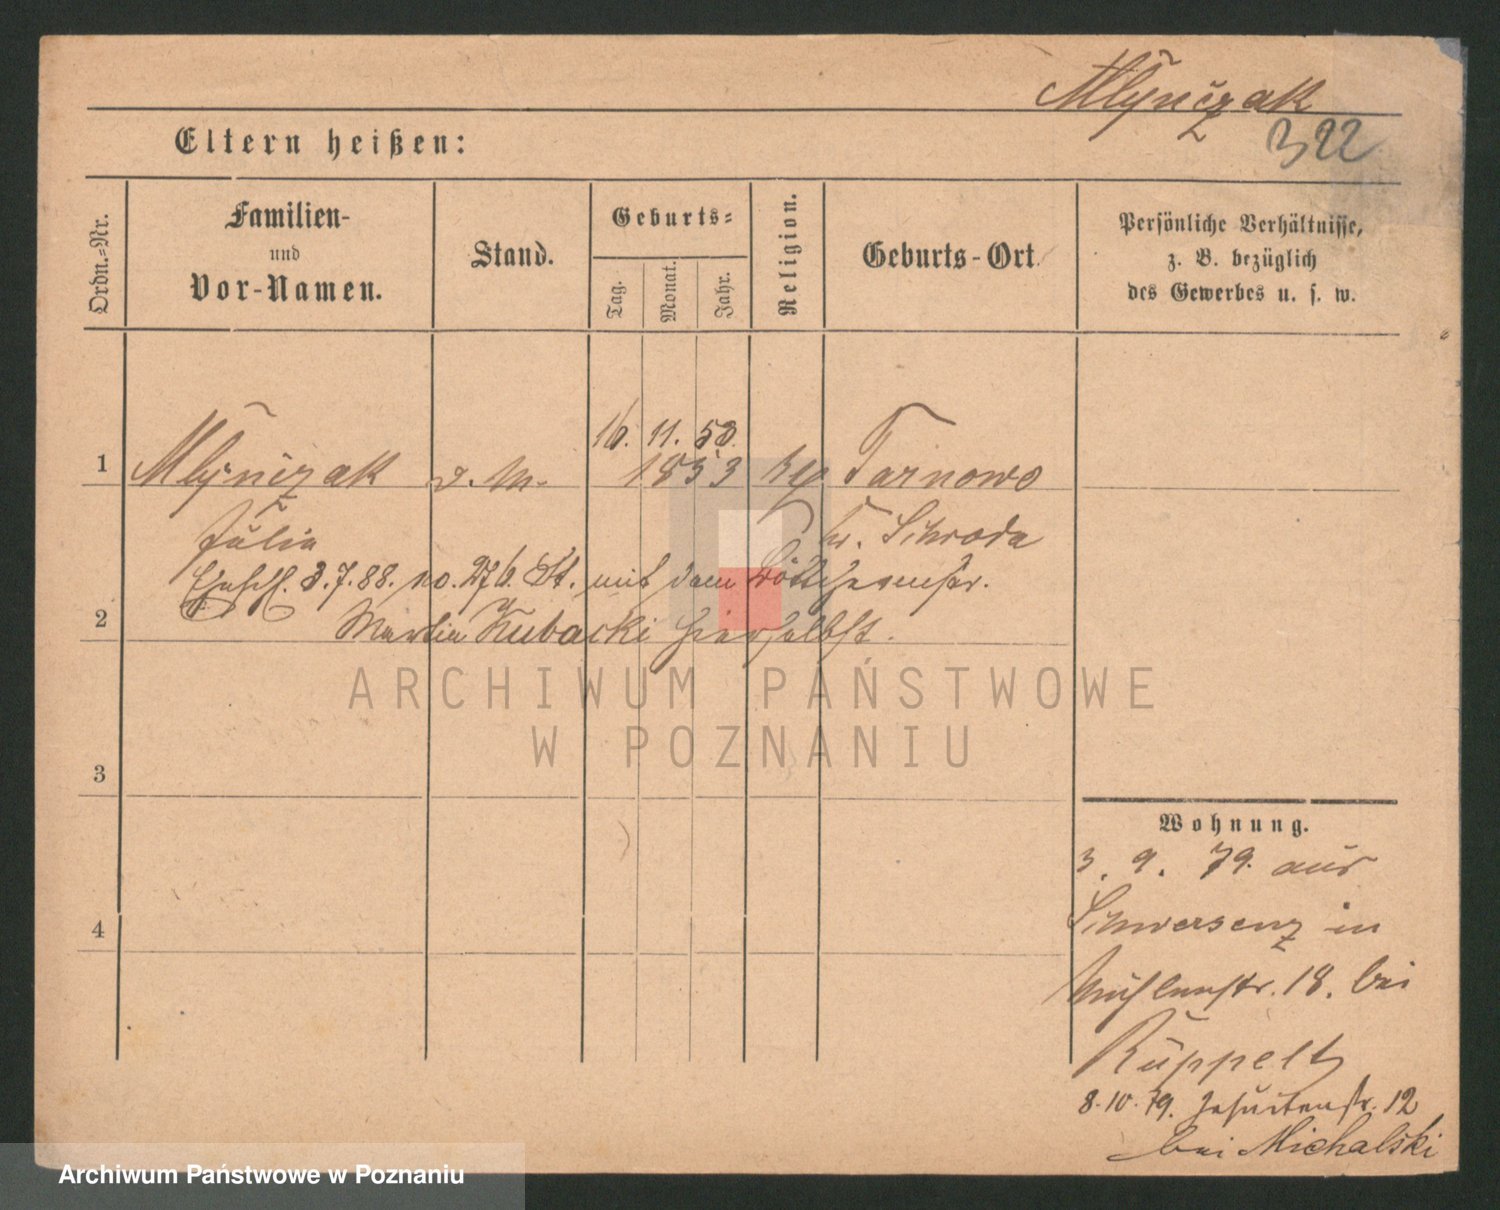 Mlynczak
322
Eltern heißen:
Ordn.-Nr.
Familien-
und
Vor-Namen.
Stand.
Geburts-
Tag.
Monat.
Jahr.
Religion.
Geburts-Ort
Persönliche Verhältnisse,
z. B. bezüglich
des Gewerbes u. s. w.
16. 11. 53.
1 Mlynczak d. M. 1853 Tarnowo
Julia Kr. Schroda
3.7.88. no. 276. St. mit dem
2 Martin Kubacki hierselbst.
ARCHIWUM PAŃSTWOWE
W POZNANIU
3
Wohnung.
3. 9. 79. aus
4
Schwersenz in
Mühlenstr. 18. bei
Ruppelt
8.10.79. Jesuitenstr. 12
bei Michalski
Archiwum Państwowe w Poznaniu